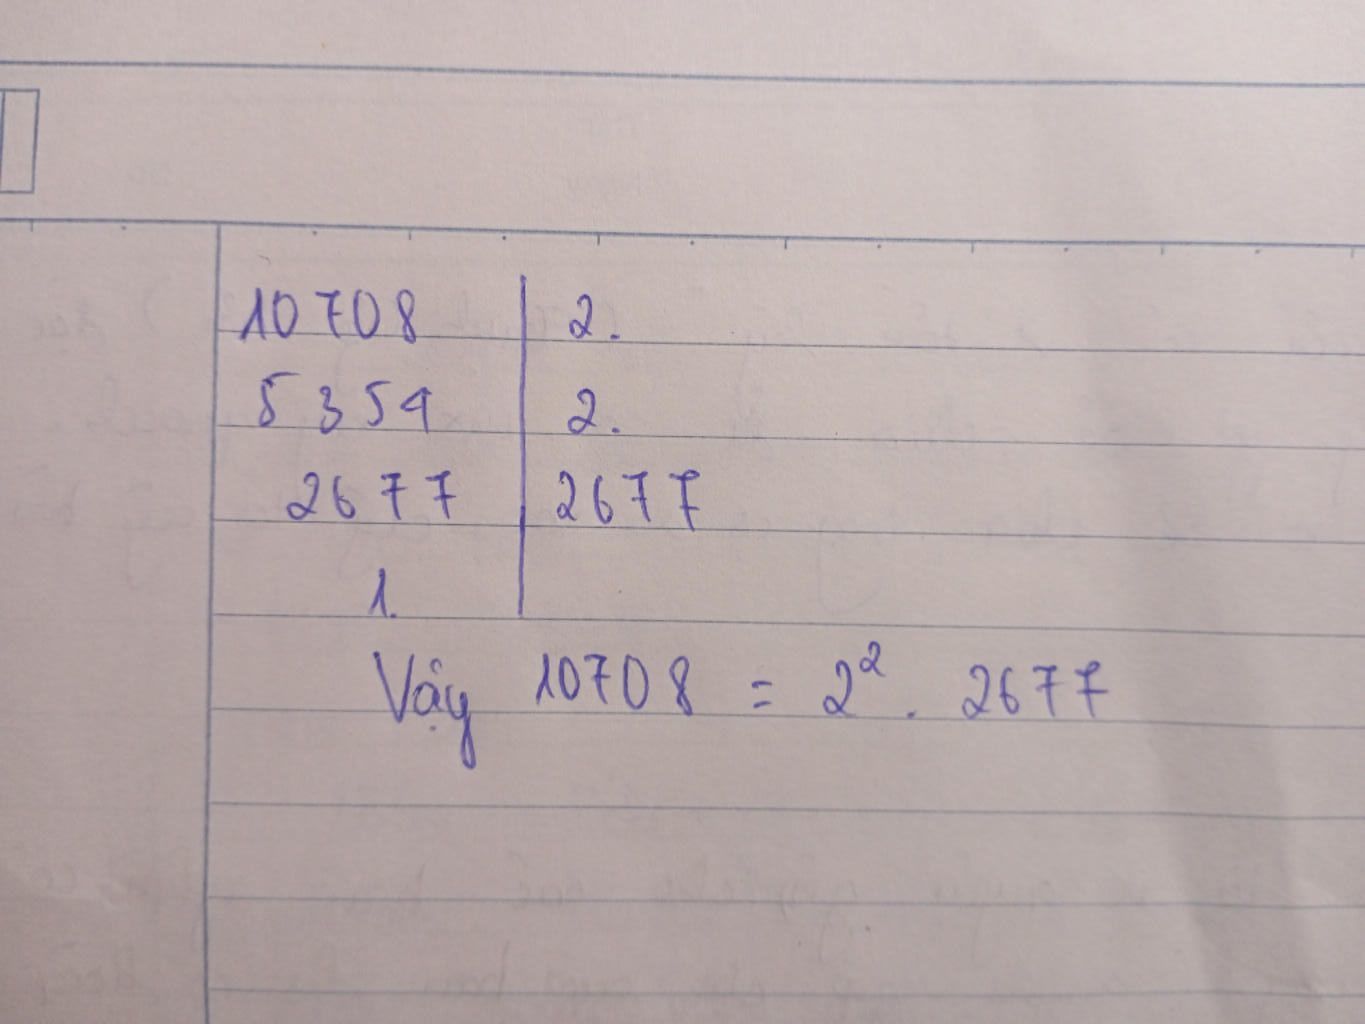 10708 | 2.
5354 | 2.
2677 | 2677
1.
Vậy 10708 = 2² . 2677